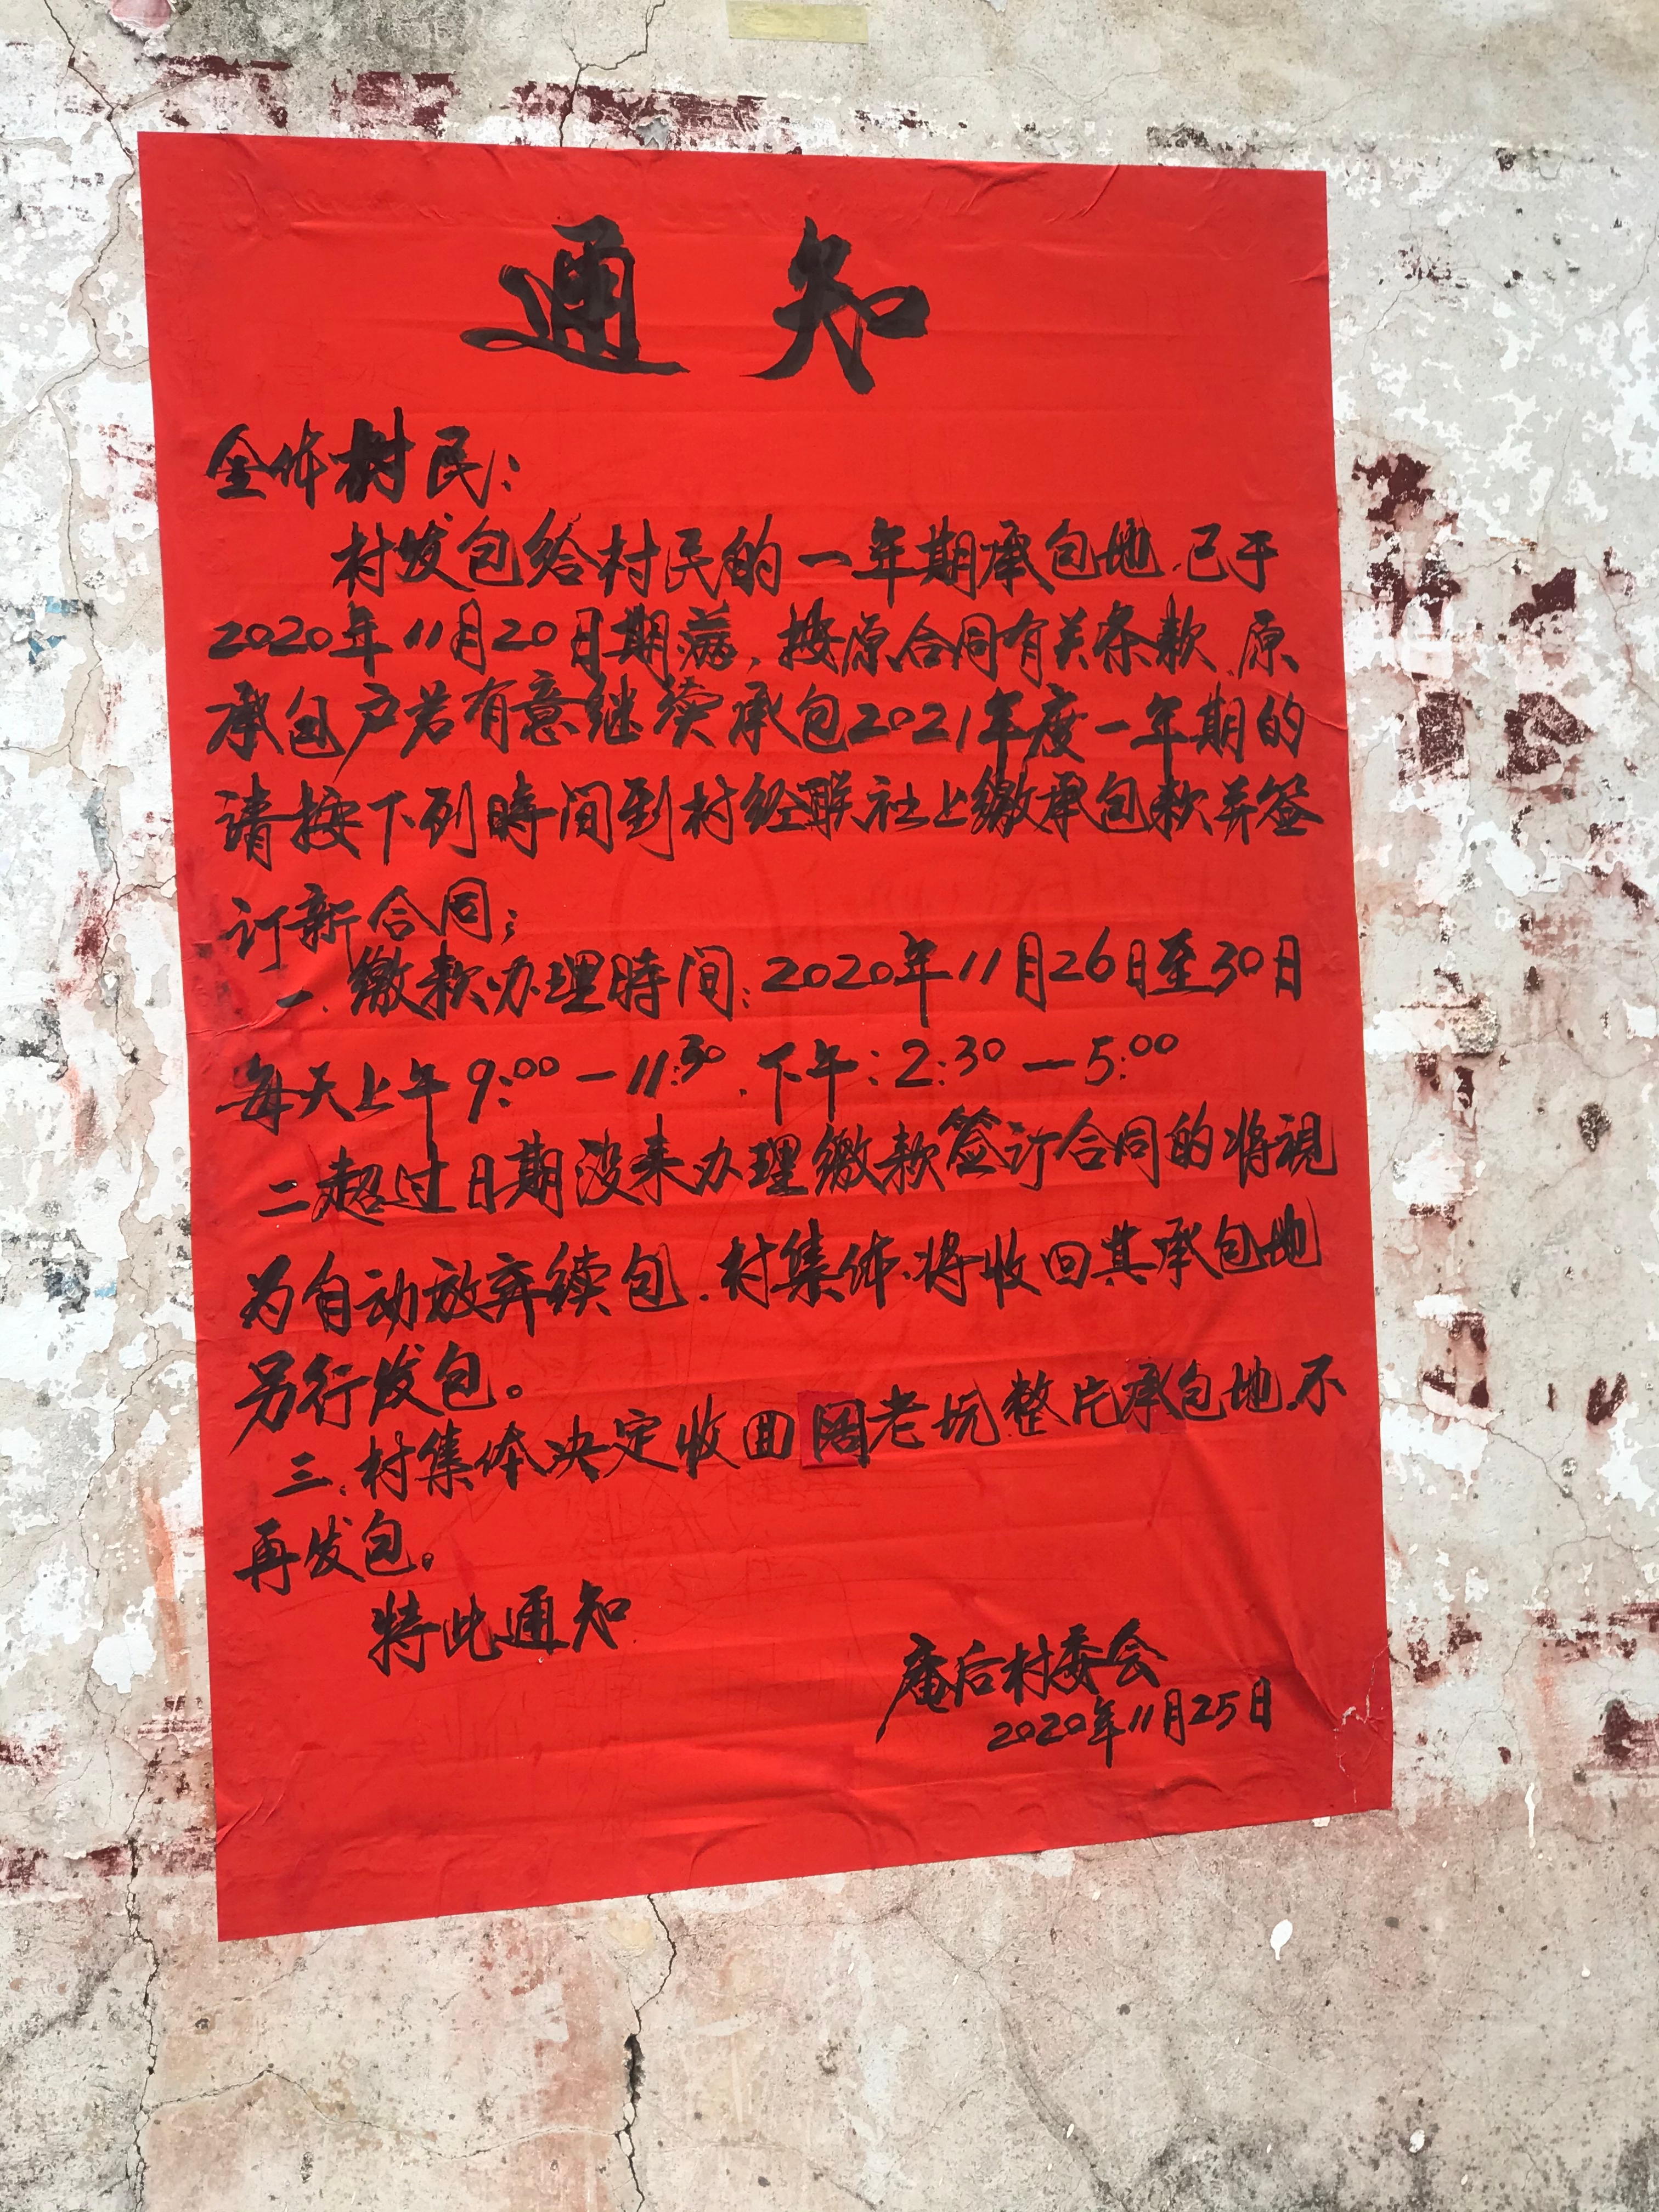 通知
全体村民：
村发包给村民的一年期承包地.已于
2020年11月20日期满，按原合同有关条款.原
承包户若有意继续承包2021年度一年期的
请按下列時间到村经联社上缴承包款并签
订新合同；
一.缴款办理時间：2020年11月26日至30日
每天上午9:00—11:30.下午：2:30—5:00
二.超过日期没来办理缴款签订合同的将視
为自动放弃续包.村集体.将收回其承包地
另行发包。
三.村集体决定收回阔老坑整片承包地.不
再发包。
特此通知
庵后村委会
2020年11月25日